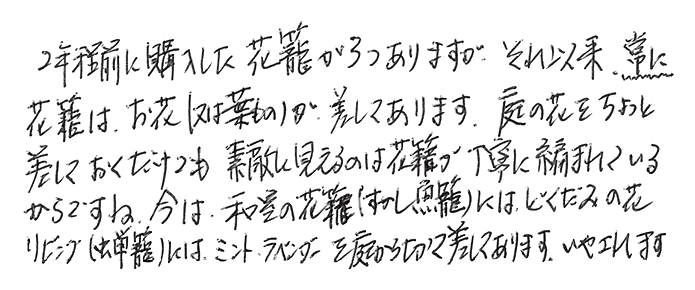 2年程前に購入した花籠が3つありますが、それ以来、常に
花籠は、お花(又は葉もの)が差してあります。庭の花をちょと
差しておくだけでも素敵に見えるのは花籠が丁寧に編まれている
からですね。今は、和室の花籠(すかし魚籠)には、どくだみの花
リビング(虫単籠)には、ミント、ラベンダーを庭から切って差してあります。いやされます